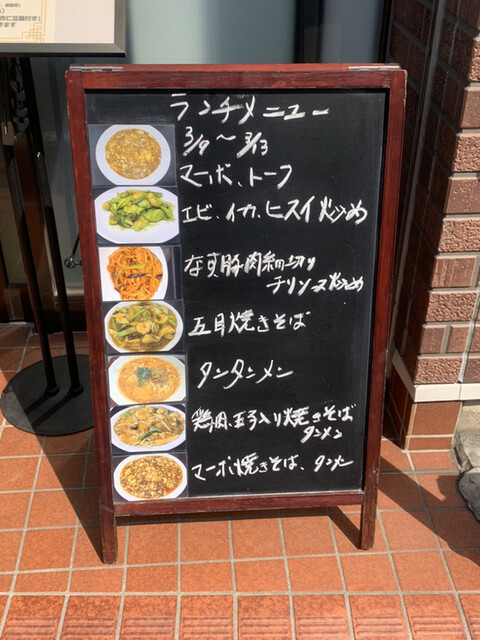 に豆腐付き)
きます
ランチメニュー
3/9〜3/13
マーボ、トーフ
エビ、イカ、ヒスイ炒め
なす豚肉細切り
チリソース炒め
五目焼きそば
タンタンメン
鶏肉、玉子入り焼きそば
タンメン
マーボ焼きそば、タンメン